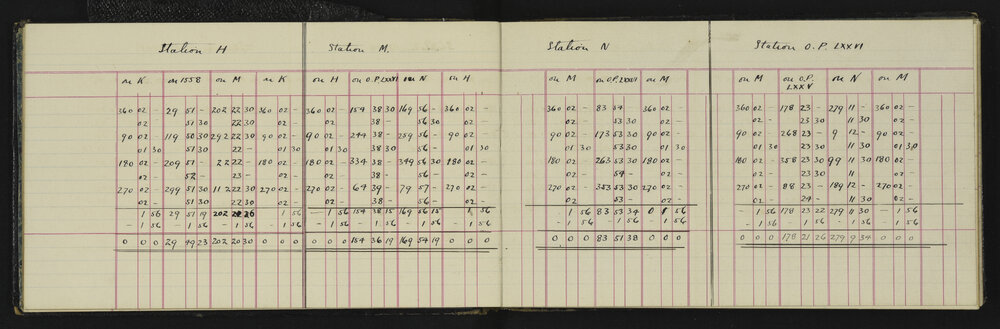 Station H Station M. Station N Station O.P. LXXVI
on K on 1558 on M on K on H on O.P. LXXVI on N on H on M on O.P. LXXVI on M on M on O.P. LXXV on N on M
360 02 - 29 51 - 202 22 30 360 02 - 360 02 - 154 38 30 169 56 - 360 02 - 360 02 - 83 54 - 360 02 - 360 02 - 178 23 - 279 11 - 360 02 -
02 - 51 30 22 30 02 - 02 - 38 - 56 30 02 - 02 - 53 30 02 - 02 - 23 30 11 30 02 -
90 02 - 119 50 30 292 22 30 90 02 - 90 02 - 244 38 - 259 56 - 90 02 - 90 02 - 173 53 30 90 02 - 90 02 - 268 23 - 9 12 - 90 02 -
01 30 51 30 22 - 01 30 01 30 38 30 56 - 01 30 01 30 53 30 01 30 01 30 23 30 11 30 01 30
180 02 - 209 51 - 22 22 - 180 02 - 180 02 - 334 38 - 349 56 30 180 02 - 180 02 - 263 53 30 180 02 - 180 02 - 358 23 30 99 11 30 180 02 -
02 - 52 - 23 - 02 - 02 - 38 - 56 - 02 - 02 - 54 - 02 - 02 - 23 - 11 30 02 -
270 02 - 299 51 30 112 22 30 270 02 - 270 02 - 64 39 - 79 57 - 270 02 - 270 02 - 353 53 30 270 02 - 270 02 - 88 23 - 189 12 - 270 02 -
02 - 51 30 22 30 02 - 02 - 38 - 56 - 02 - 02 - 53 - 02 - 02 - 24 - 11 30 02 -
1 56 29 51 19 202 22 26 1 56 - 1 56 154 38 15 169 56 15 1 56 1 56 83 53 34 0 1 56 - 1 56 178 23 22 279 11 30 - 1 56
- 1 56 1 56 1 56 1 56 - 1 56 1 56 1 56 1 56 - 1 56 1 56 1 56 - 1 56 1 56 1 56 - 1 56
0 0 0 29 49 23 202 20 30 0 0 0 0 0 0 154 36 19 169 54 19 0 0 0 0 0 0 83 51 38 0 0 0 0 0 0 178 21 26 279 9 34 0 0 0